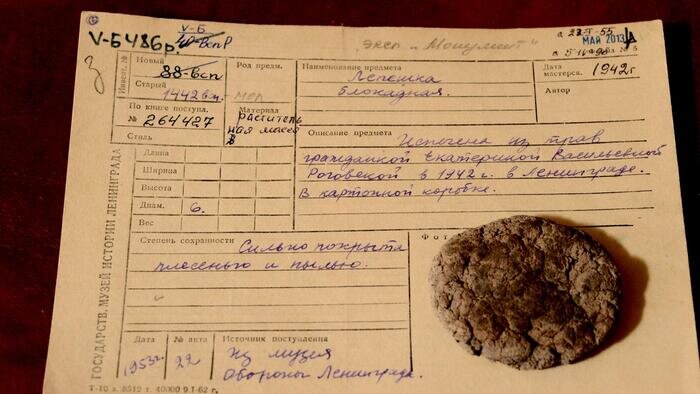 V-Б
V-Б 486 р.
эксп. „Монумент"
МАЙ 2013
№ 5
Инвент. №
Новый
88-всп
Старый
1442 всп.
Род предм.
По книге поступл.
№ 264427
Материал
раститель
ная масса
Стиль
Наименование предмета
Лепешка
блокадная.
Дата
мастерск.
1942 г
Автор
Описание предмета
Испечена из трав
гражданкой Екатериной Васильевной
Роговской в 1942 г. в Ленинграде.
В картонной коробке.
Длина
Ширина
Высота
Диам. 6.
Вес
Степень сохранности
Сильно покрыта
плесенью и пылью
Фот
Дата
1953г.
№ акта
22
Источник поступления
Из музея
Обороны Ленинграда.
ГОСУДАРСТВ. МУЗЕЙ ИСТОРИИ ЛЕНИНГРАДА
Т-10 з. 8512 т. 40000 9/I-62 г.